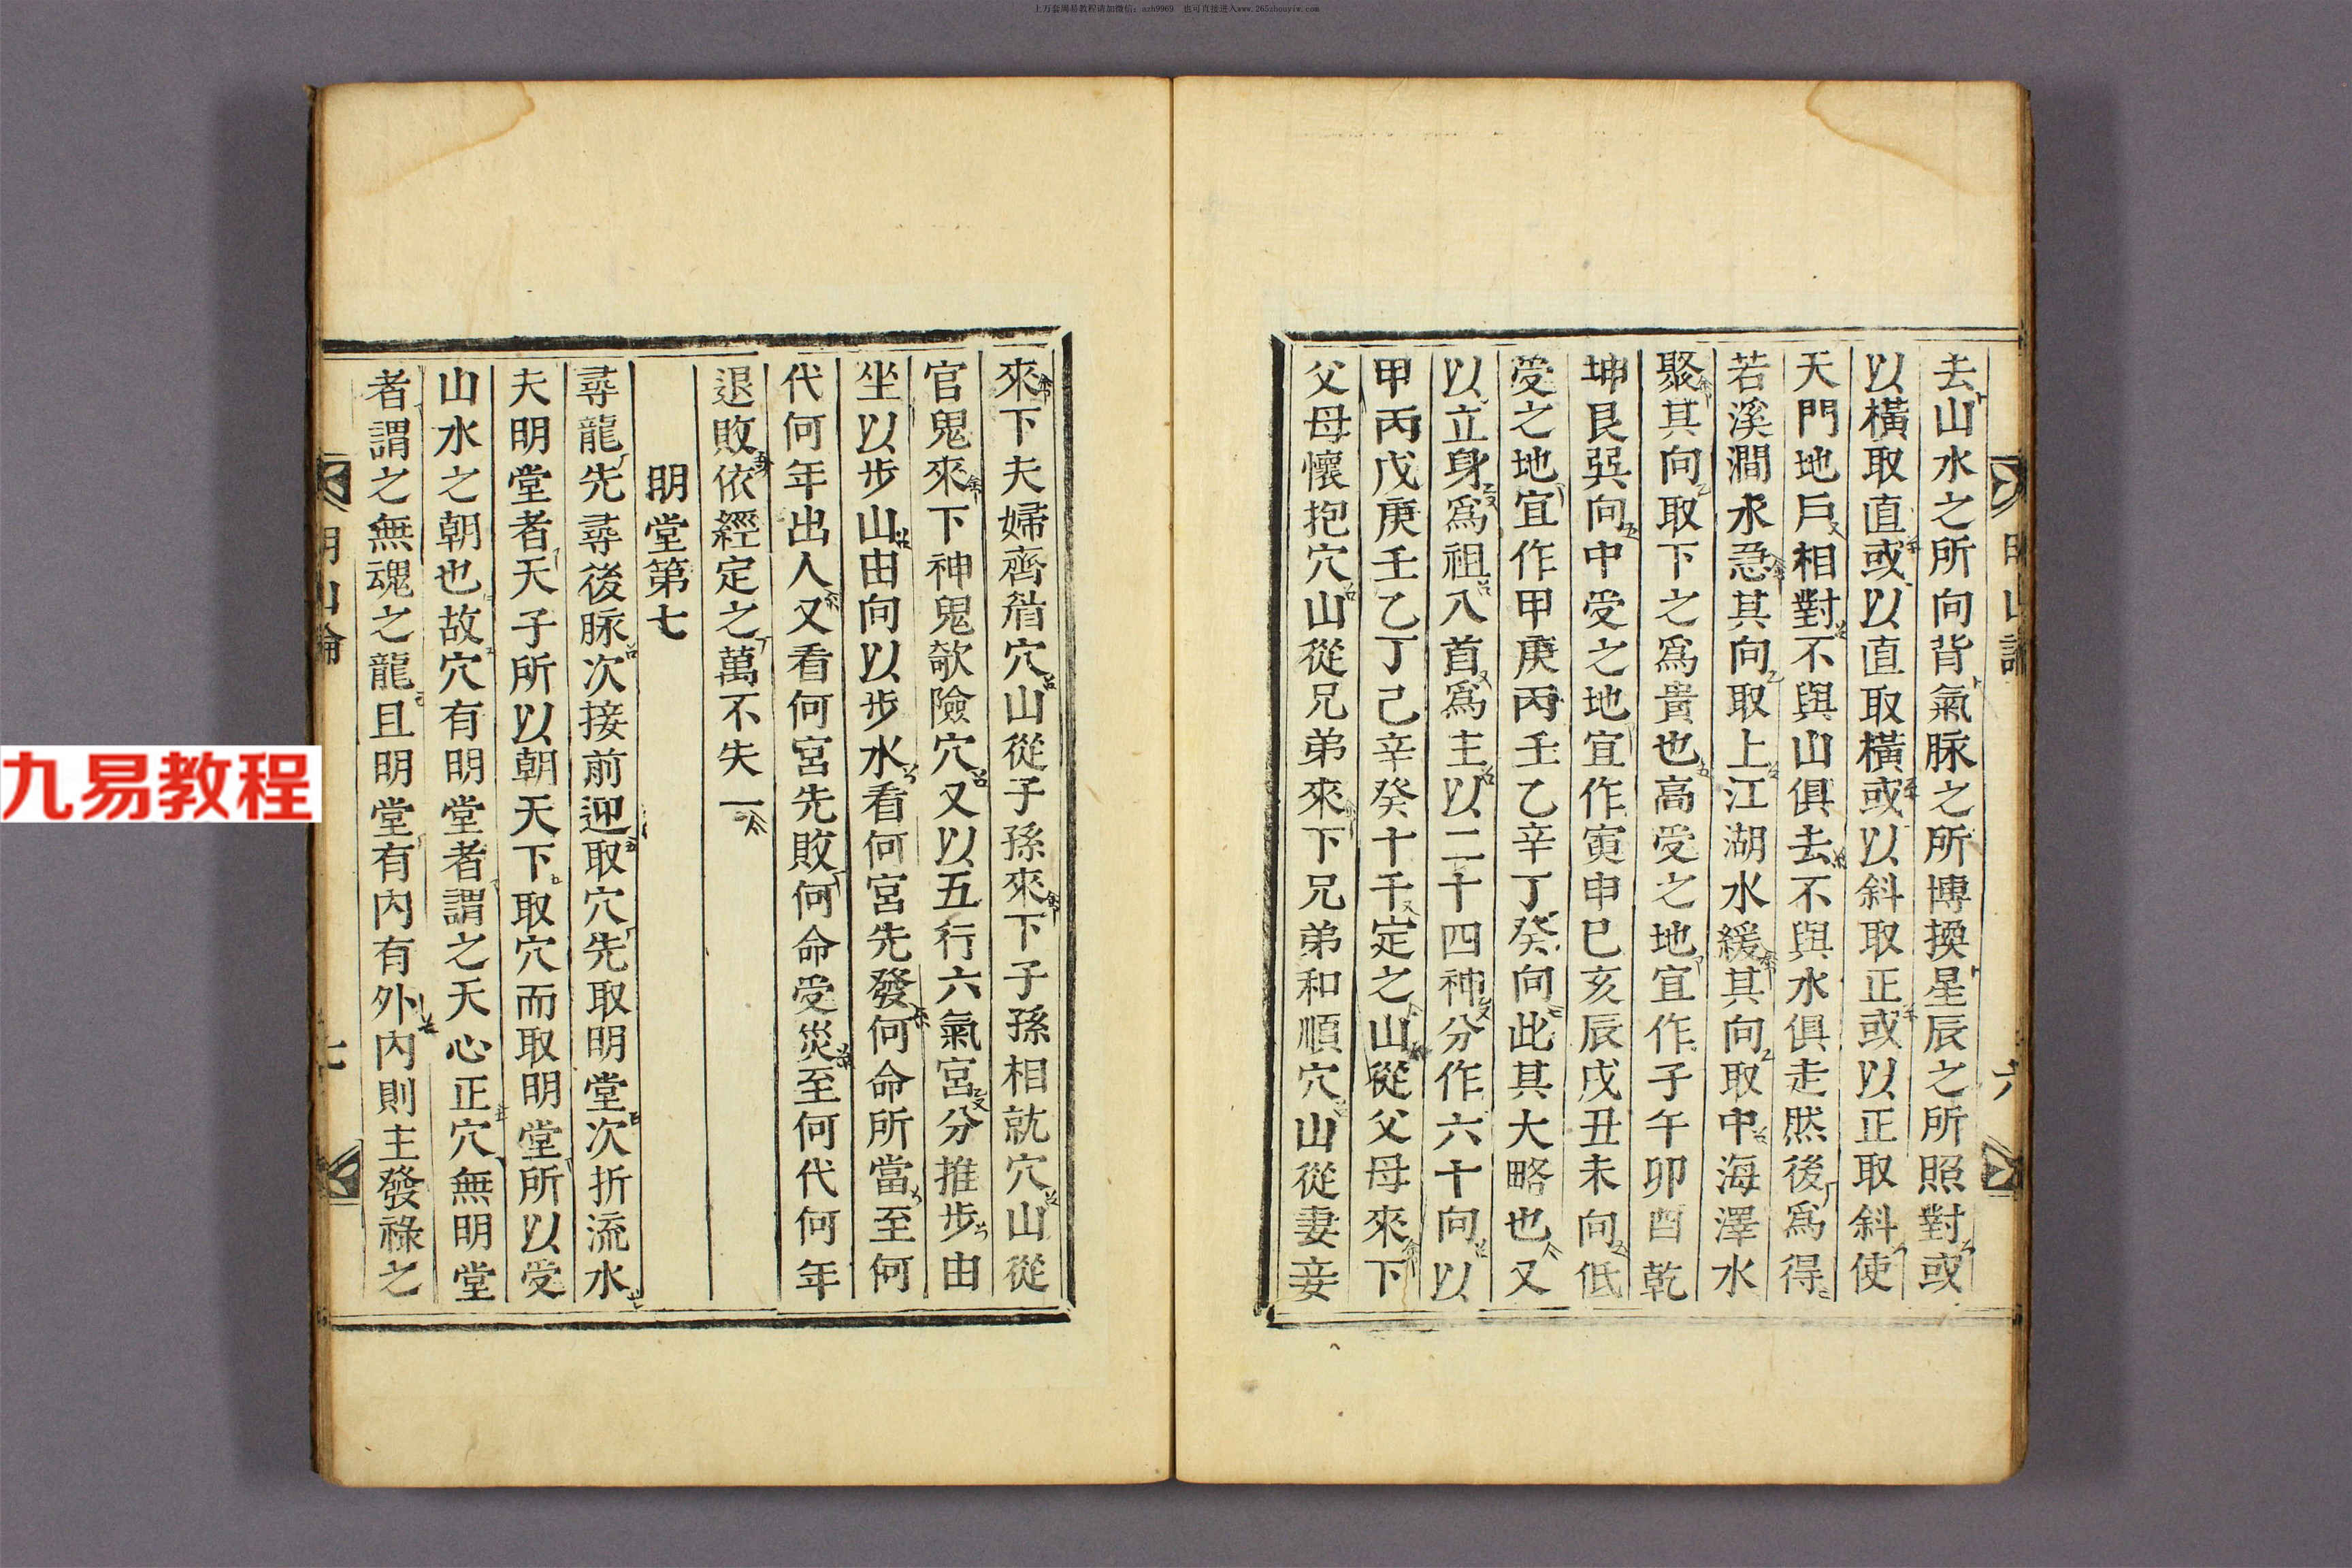 上万套周易教程请加微信：azh9969　也可直接进入www.265zhouyiw.com
九易教程
明山論
六
去山水之所向背氣脉之所博換星辰之所照對或
以橫取直或以直取橫或以斜取正或以正取斜使
天門地戶相對不與山俱去不與水俱走然後爲得
若溪澗水急其向取上江湖水緩其向取中海澤水
聚其向取下之爲貴也高受之地宜作子午卯酉乾
坤艮巽向中受之地宜作寅申巳亥辰戌丑未向低
受之地宜作甲庚丙壬乙辛丁癸向此其大略也又
以立身爲祖八首爲主以二十四神分作六十向以
甲丙戊庚壬乙丁己辛癸十千定之山從父母來下
父母懷抱穴山從兄弟來下兄弟和順穴山從妻妾
來下夫婦齊眉穴山從子孫來下子孫相就穴山從
官鬼來下神鬼欹險穴又以五行六氣宮分推步由
坐以步山由向以步水看何宮先發何命所當至何
代何年出人又看何宮先敗何命受災至何代何年
退敗依經定之萬不失一
明堂第七
尋龍先尋後脉次接前迎取穴先取明堂次折流水
夫明堂者天子所以朝天下取穴而取明堂所以受
山水之朝也故穴有明堂者謂之天心正穴無明堂
者謂之無魂之龍且明堂有內有外內則主發祿之
明山論
七